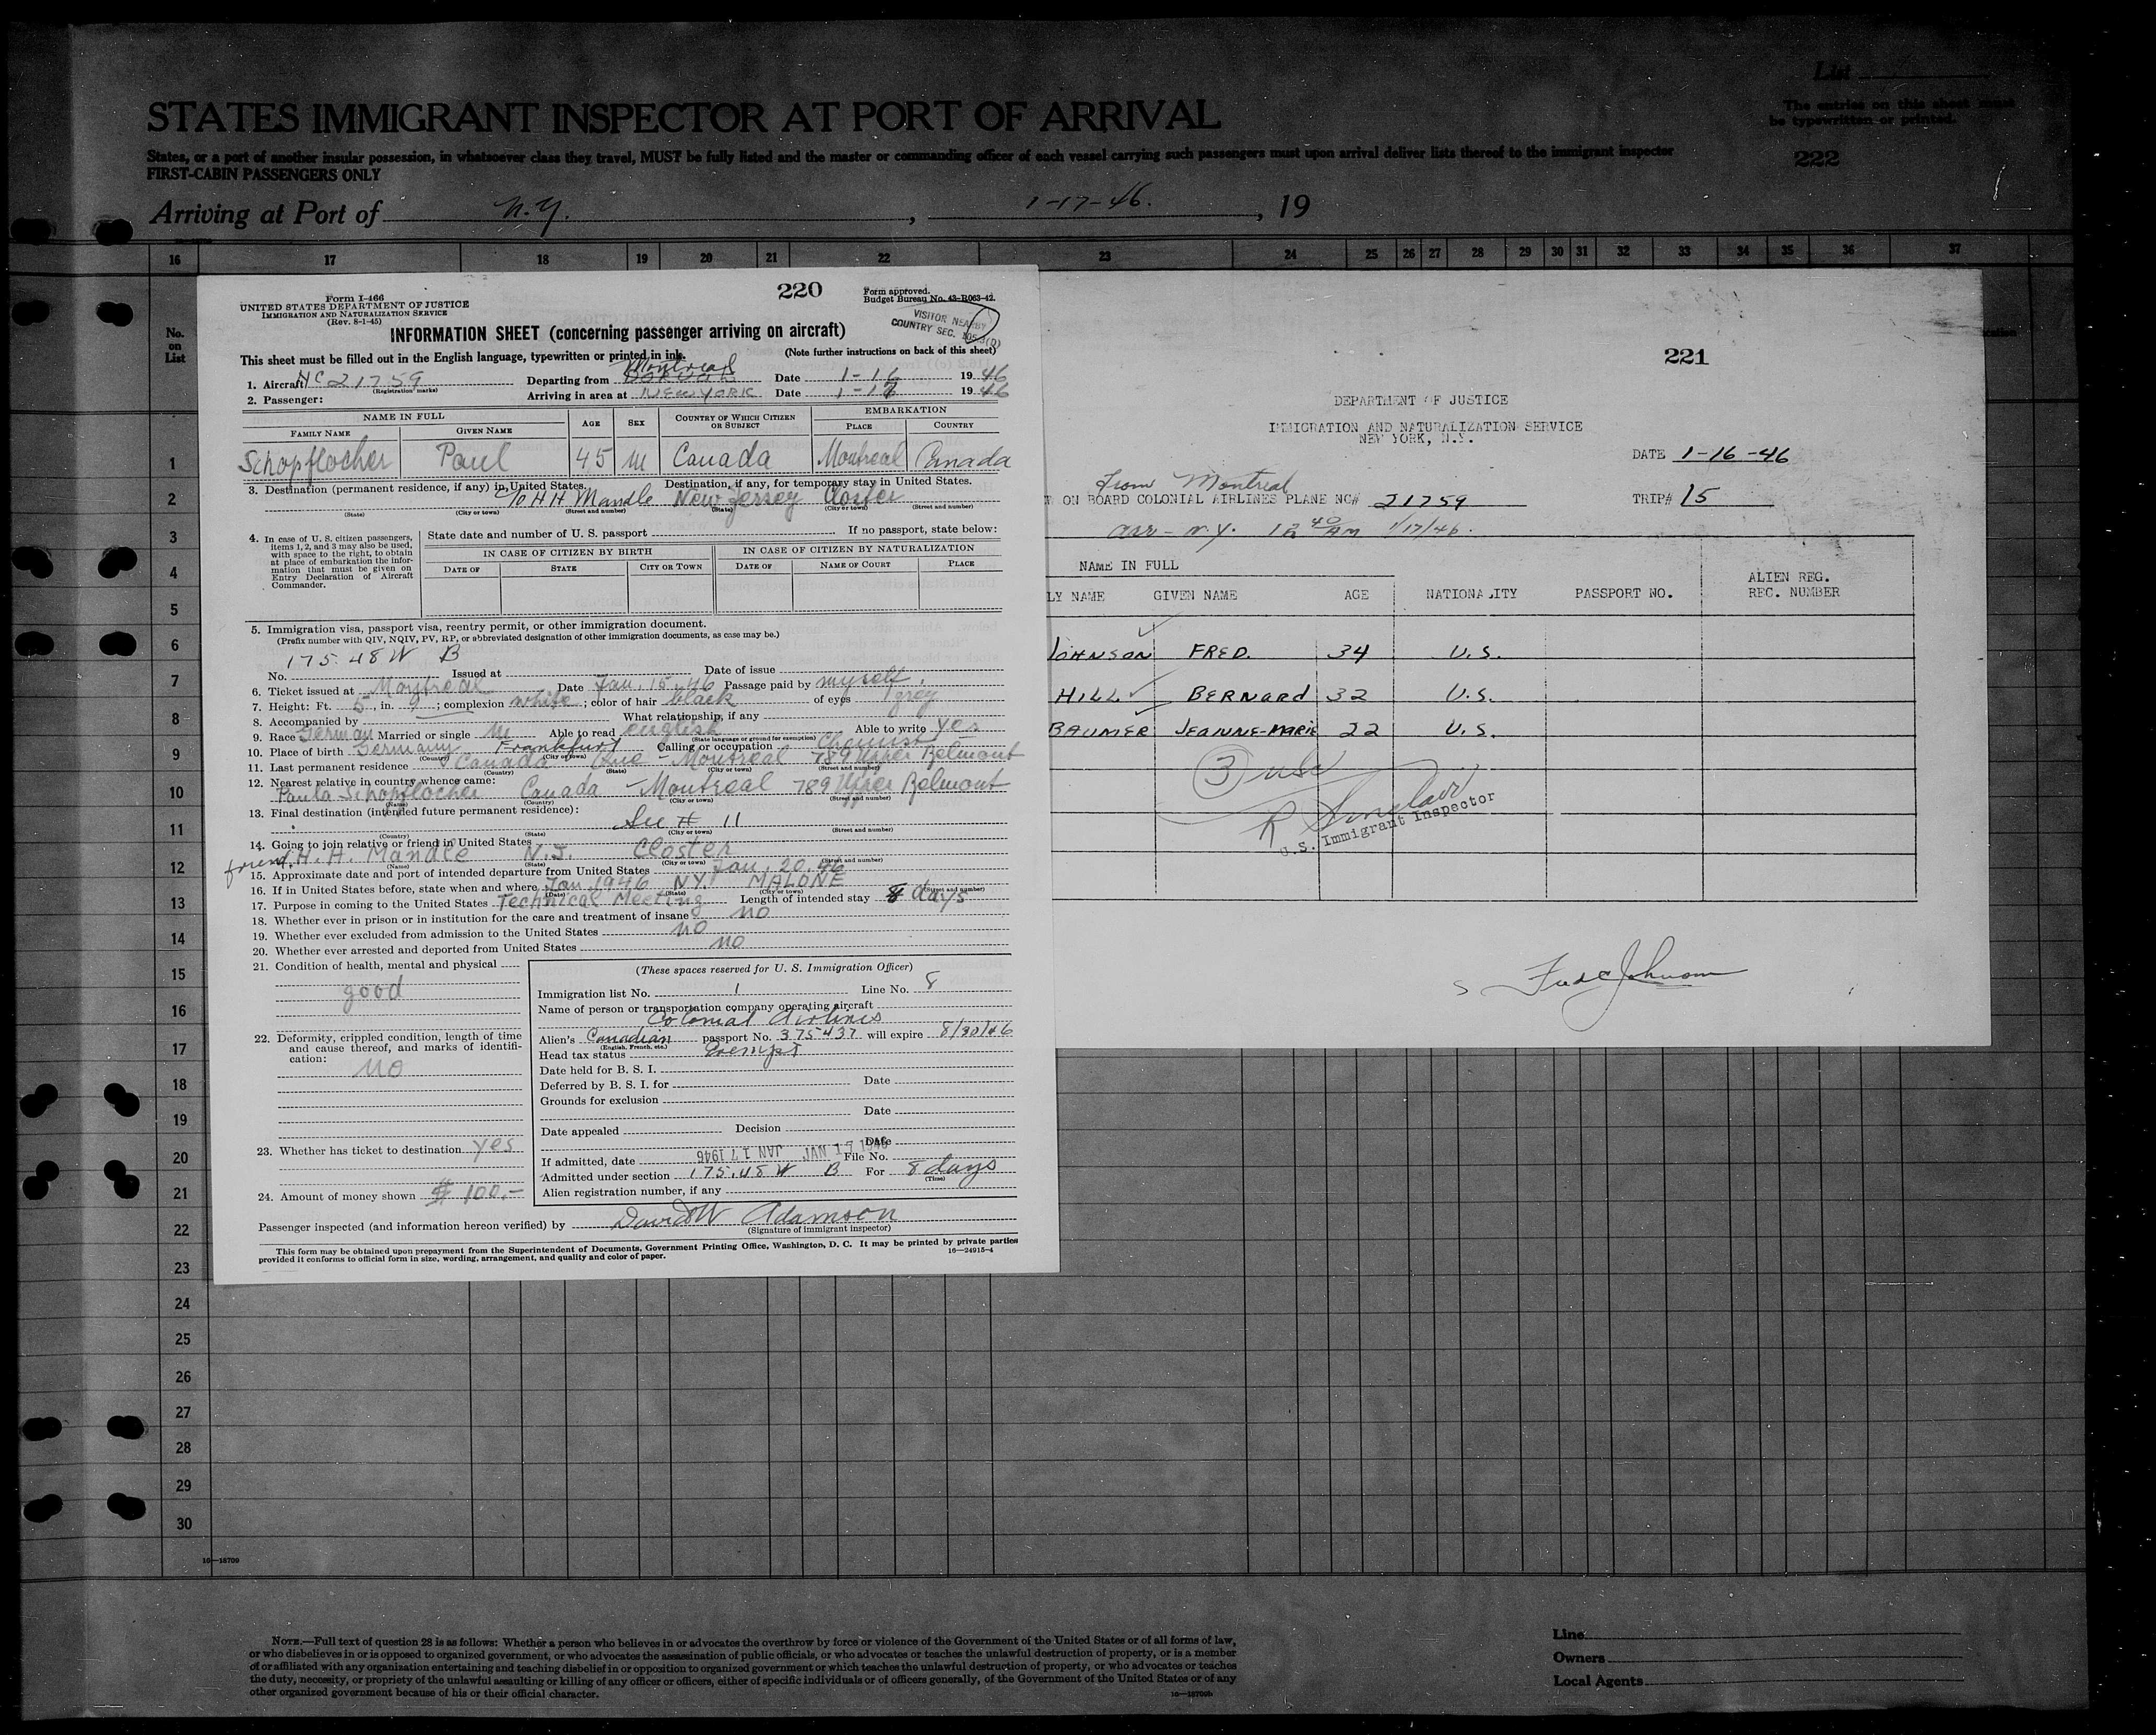 List
The entries on this sheet must
be typewritten or printed.
222
STATES IMMIGRANT INSPECTOR AT PORT OF ARRIVAL
States, or a port of another insular possession, in whatsoever class they travel, MUST be fully listed and the master or commanding officer of each vessel carrying such passengers must upon arrival deliver lists thereof to the immigrant inspector
FIRST-CABIN PASSENGERS ONLY
Arriving at Port of N.Y. , 1-17-46. , 19
16 17 18 19 20 21 22 23 24 25 26 27 28 29 30 31 32 33 34 35 36 37
No. on List
1
2
3
4
5
6
7
8
9
10
11
12
13
14
15
16
17
18
19
20
21
22
23
24
25
26
27
28
29
30
16—18709
Form I-466
UNITED STATES DEPARTMENT OF JUSTICE
IMMIGRATION AND NATURALIZATION SERVICE
(Rev. 8-1-45)
220
Form approved.
Budget Bureau No. 43-R063-42.
VISITOR NEARBY
COUNTRY SEC.
INFORMATION SHEET (concerning passenger arriving on aircraft)
This sheet must be filled out in the English language, typewritten or printed in ink. (Note further instructions on back of this sheet)
Montreal
1. Aircraft NC 21759 Departing from DORVAL Date 1-16 1946
(Registration marks)
2. Passenger: Arriving in area at NEW YORK Date 1-17 1946
NAME IN FULL AGE SEX COUNTRY OF WHICH CITIZEN OR SUBJECT EMBARKATION
FAMILY NAME GIVEN NAME PLACE COUNTRY
Schopflocher Paul 45 M Canada Montreal Canada
3. Destination (permanent residence, if any) in United States. Destination, if any, for temporary stay in United States.
c/o H H Mandle New Jersey Closter
(State) (City or town) (Street and number) (State) (City or town) (Street and number)
4. In case of U. S. citizen passengers, items 1, 2, and 3 may also be used, with space to the right, to obtain at place of embarkation the information that must be given on Entry Declaration of Aircraft Commander.
State date and number of U. S. passport If no passport, state below:
IN CASE OF CITIZEN BY BIRTH IN CASE OF CITIZEN BY NATURALIZATION
DATE OF STATE CITY OR TOWN DATE OF NAME OF COURT PLACE
5. Immigration visa, passport visa, reentry permit, or other immigration document.
(Prefix number with QIV, NQIV, PV, RP, or abbreviated designation of other immigration documents, as case may be.)
175.48W B
No. Issued at Date of issue
6. Ticket issued at Montreal Date Jan. 15. 46 Passage paid by myself.
7. Height: Ft. 5, in. 9; complexion white; color of hair black of eyes grey
8. Accompanied by What relationship, if any
9. Race German Married or single M Able to read english Able to write yes
(State language or ground for exemption)
10. Place of birth Germany Frankfurt Calling or occupation Chemist
(Country) (City or town) (State)
11. Last permanent residence Canada Que - Montreal 789 Upper Belmont
(Country) (City or town) (Street and number)
12. Nearest relative in country whence came:
Paula Schopflocher Canada - Montreal 789 Upper Belmont
(Name) (Country) (City or town) (Street and number)
13. Final destination (intended future permanent residence):
See # 11
(Country) (State) (City or town) (Street and number)
14. Going to join relative or friend in United States
friend. H. H. Mandle N.J. Closter
(Name) (State) (City or town) (Street and number)
15. Approximate date and port of intended departure from United States Jan. 20. 46
16. If in United States before, state when and where Jan 1946 N.Y. MALONE
(Date) (State) (City or town) (Street and number)
17. Purpose in coming to the United States Technical Meeting Length of intended stay 8 days
18. Whether ever in prison or in institution for the care and treatment of insane no
19. Whether ever excluded from admission to the United States no
20. Whether ever arrested and deported from United States no
21. Condition of health, mental and physical
good
22. Deformity, crippled condition, length of time and cause thereof, and marks of identification:
no
23. Whether has ticket to destination yes
24. Amount of money shown $ 100.-
(These spaces reserved for U. S. Immigration Officer)
Immigration list No. 1 Line No. 8
Name of person or transportation company operating aircraft
Colonial Airlines
Alien's Canadian passport No. 375437 will expire 8/30/46
(English, French, etc.)
Head tax status Exempt
Date held for B. S. I.
Deferred by B. S. I. for Date
Grounds for exclusion
Date
Date appealed Decision
Date
If admitted, date JAN 17 1946 JAN 17 1946 File No.
Admitted under section 175.48W B For 8 days
(Time)
Alien registration number, if any
Passenger inspected (and information hereon verified) by David W Adamson
(Signature of immigrant inspector)
This form may be obtained upon prepayment from the Superintendent of Documents, Government Printing Office, Washington, D. C. It may be printed by private parties
provided it conforms to official form in size, wording, arrangement, and quality and color of paper. 16—24915-4
221
DEPARTMENT OF JUSTICE
IMMIGRATION AND NATURALIZATION SERVICE
NEW YORK, N.Y.
DATE 1-16-46
from Montreal
ON BOARD COLONIAL AIRLINES PLANE NC# 21759 TRIP# 15
arr - N.Y. 12 40 AM 1/17/46.
NAME IN FULL
LY NAME GIVEN NAME AGE NATIONALITY PASSPORT NO. ALIEN REG. REG. NUMBER
JOHNSON FRED. 34 U.S.
HILL BERNARD 32 U.S.
BAUMER JEANNE-MARIE 22 U.S.
3 usc
R Sinclair
U.S. Immigrant Inspector
Fred C Johnson
NOTE.—Full text of question 28 is as follows: Whether a person who believes in or advocates the overthrow by force or violence of the Government of the United States or of all forms of law,
or who disbelieves in or is opposed to organized government, or who advocates the assassination of public officials, or who advocates or teaches the unlawful destruction of property, or is a member
of or affiliated with any organization entertaining and teaching disbelief in or opposition to organized government or which teaches the unlawful destruction of property, or who advocates or teaches
the duty, necessity, or propriety of the unlawful assaulting or killing of any officer or officers, either of specific individuals or of officers generally, of the Government of the United States or of any
other organized government because of his or their official character.
16—18709b
Line
Owners
Local Agents